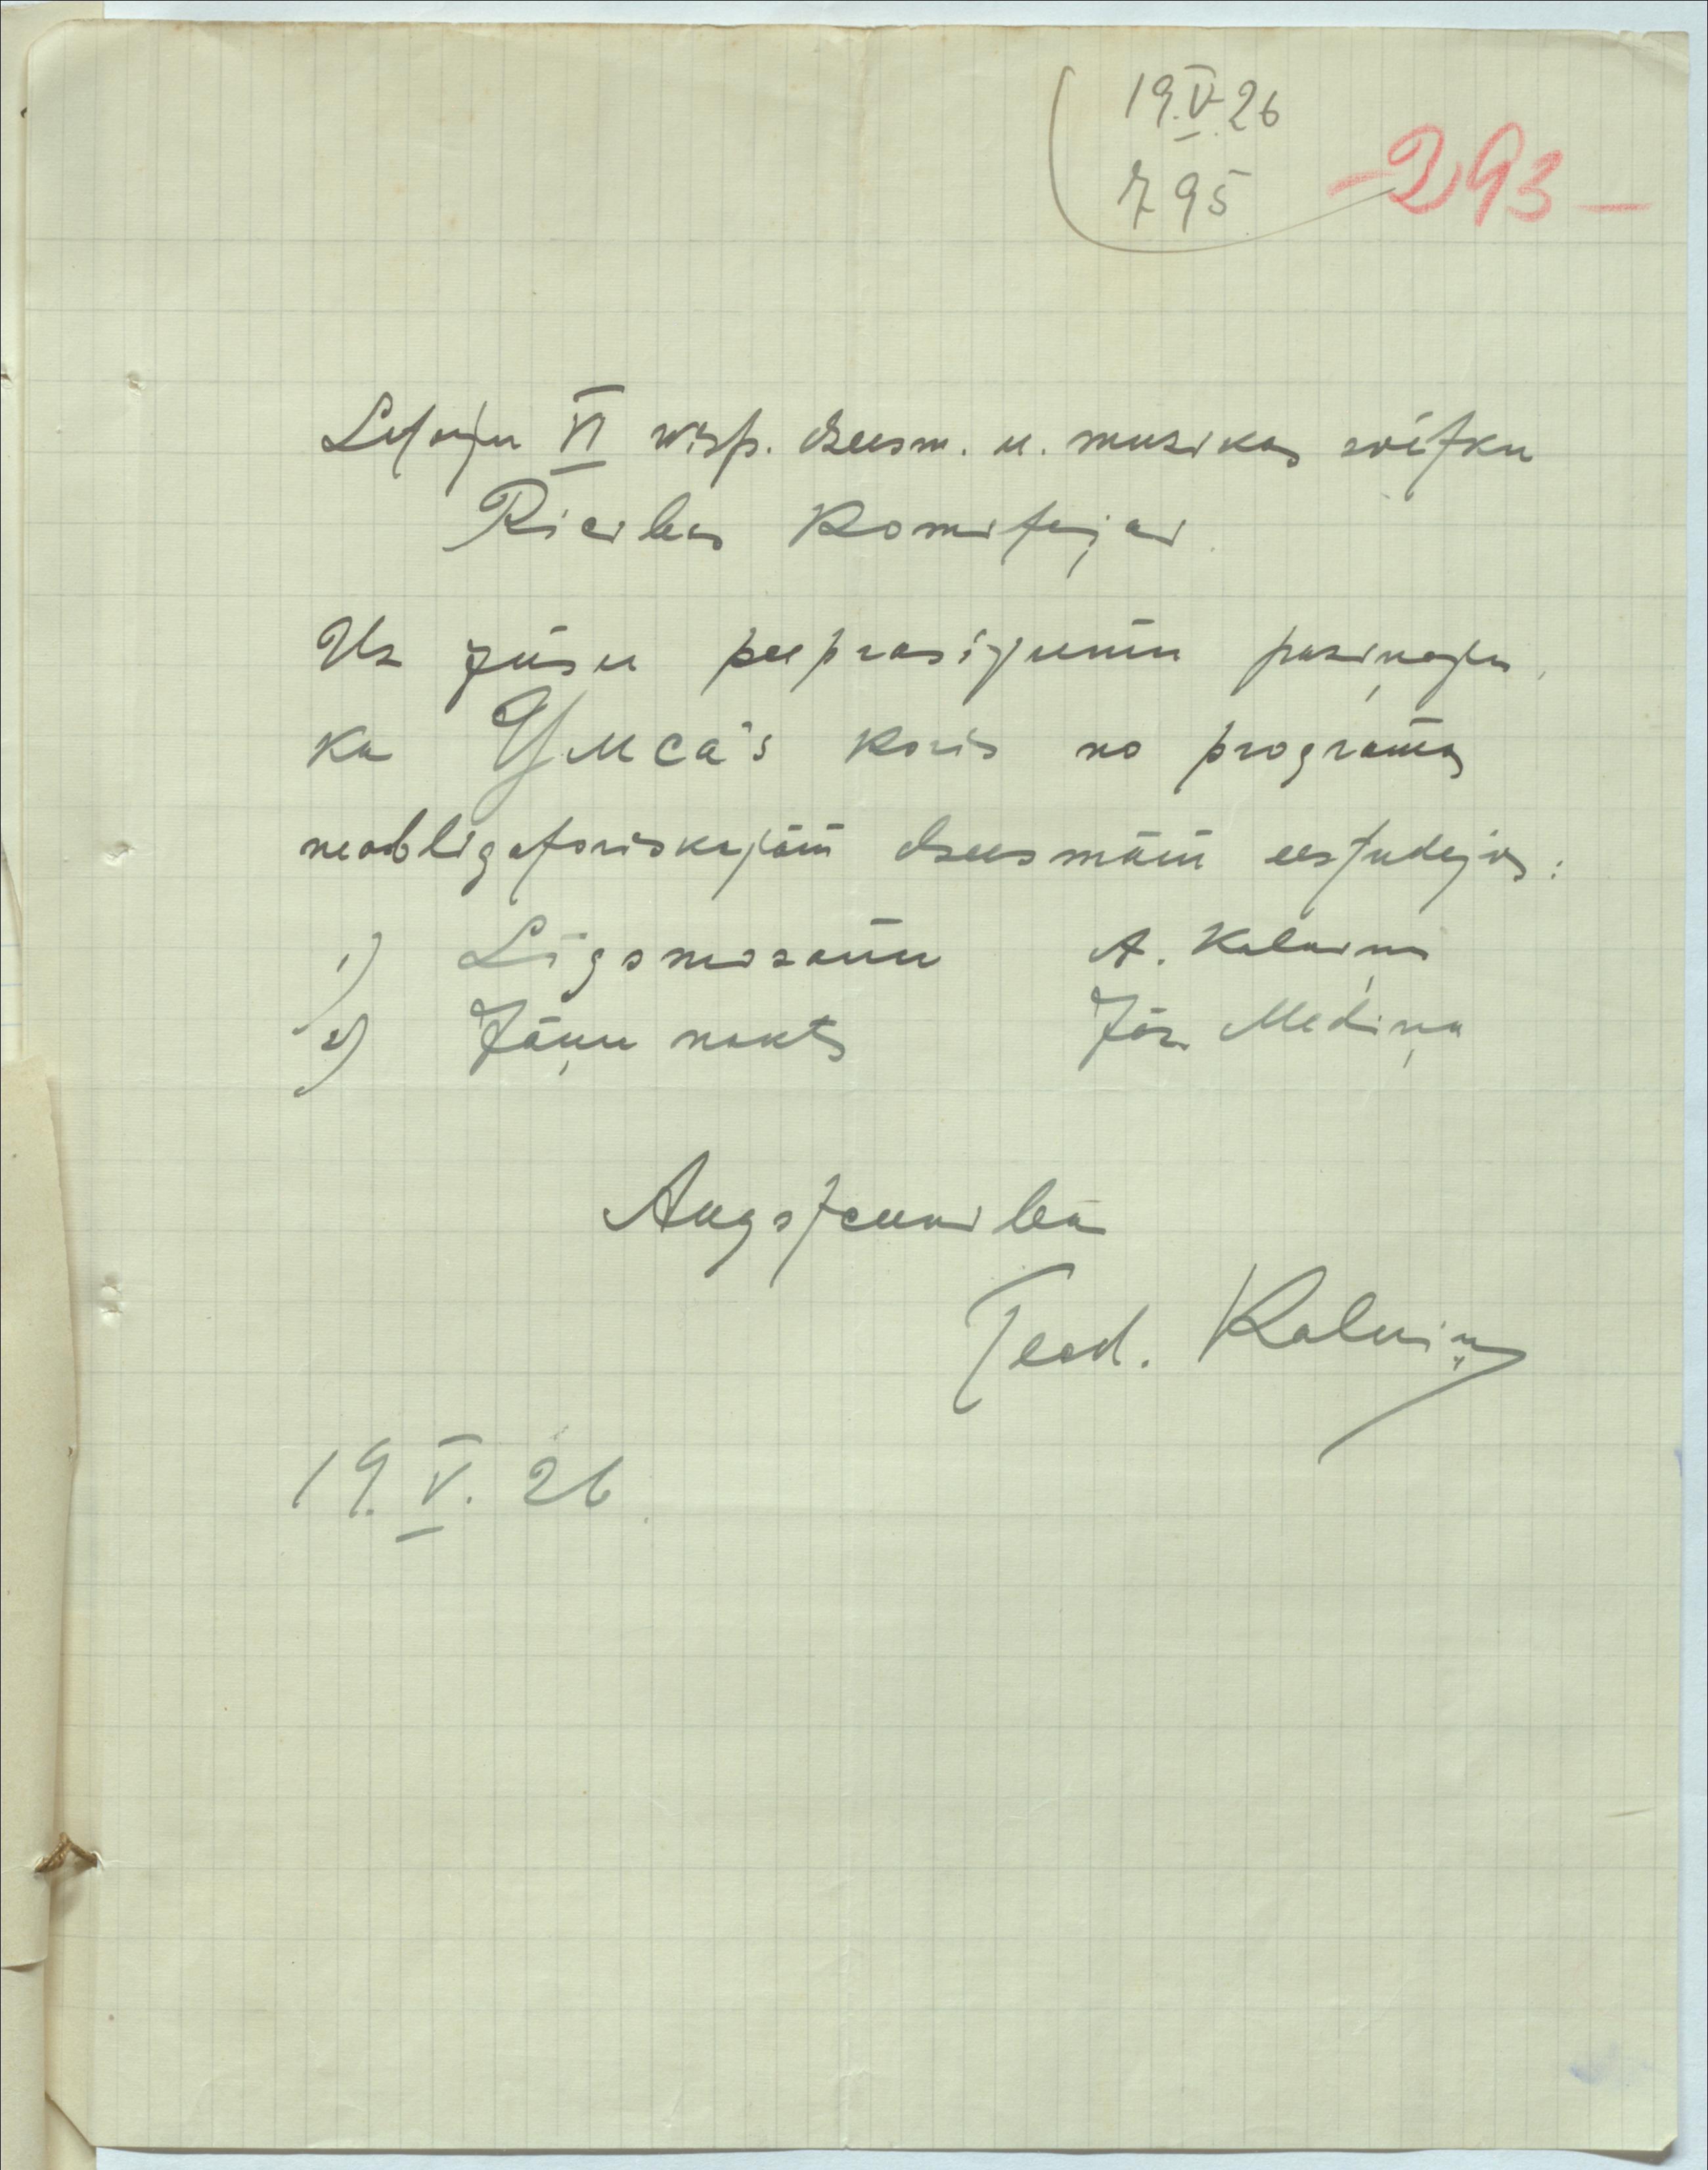 19.V.26
795
-293-
Latvju VI wisp. dzeesm. u. muzikas svētku
Rīcības Komitejai.
Uz jūsu peeprasijumu paziņoju,
ka YMCA's koris no programas
neobligatoriskajām dzeesmām eestudejis:
1) Līgsmozamu A. Kalniņa
2) Jāņu nakts Jāz. Mediņa
Augstceenibā
Teod. Kalniņš
19.V.26.